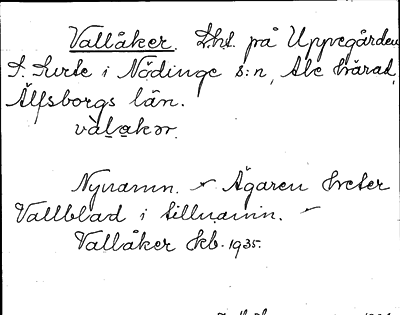 Vallåker. Lht. på Uppegården
S. Surte i Nödinge s:n, Ale härad,
Älfsborgs län.
vàlakər.
Nynamn. Ägaren heter
Vallblad i tillnamn.
Vallåker Jkb. 1935.